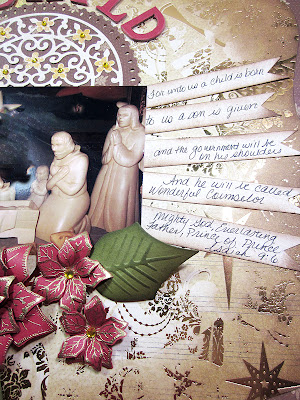 ILD
For unto us a child is born
to us a son is given
and the government will be
on his shoulders
And he will be called,
Wonderful Counselor
Mighty God, Everlasting
Father, Prince of Peace
Isaiah 9:6